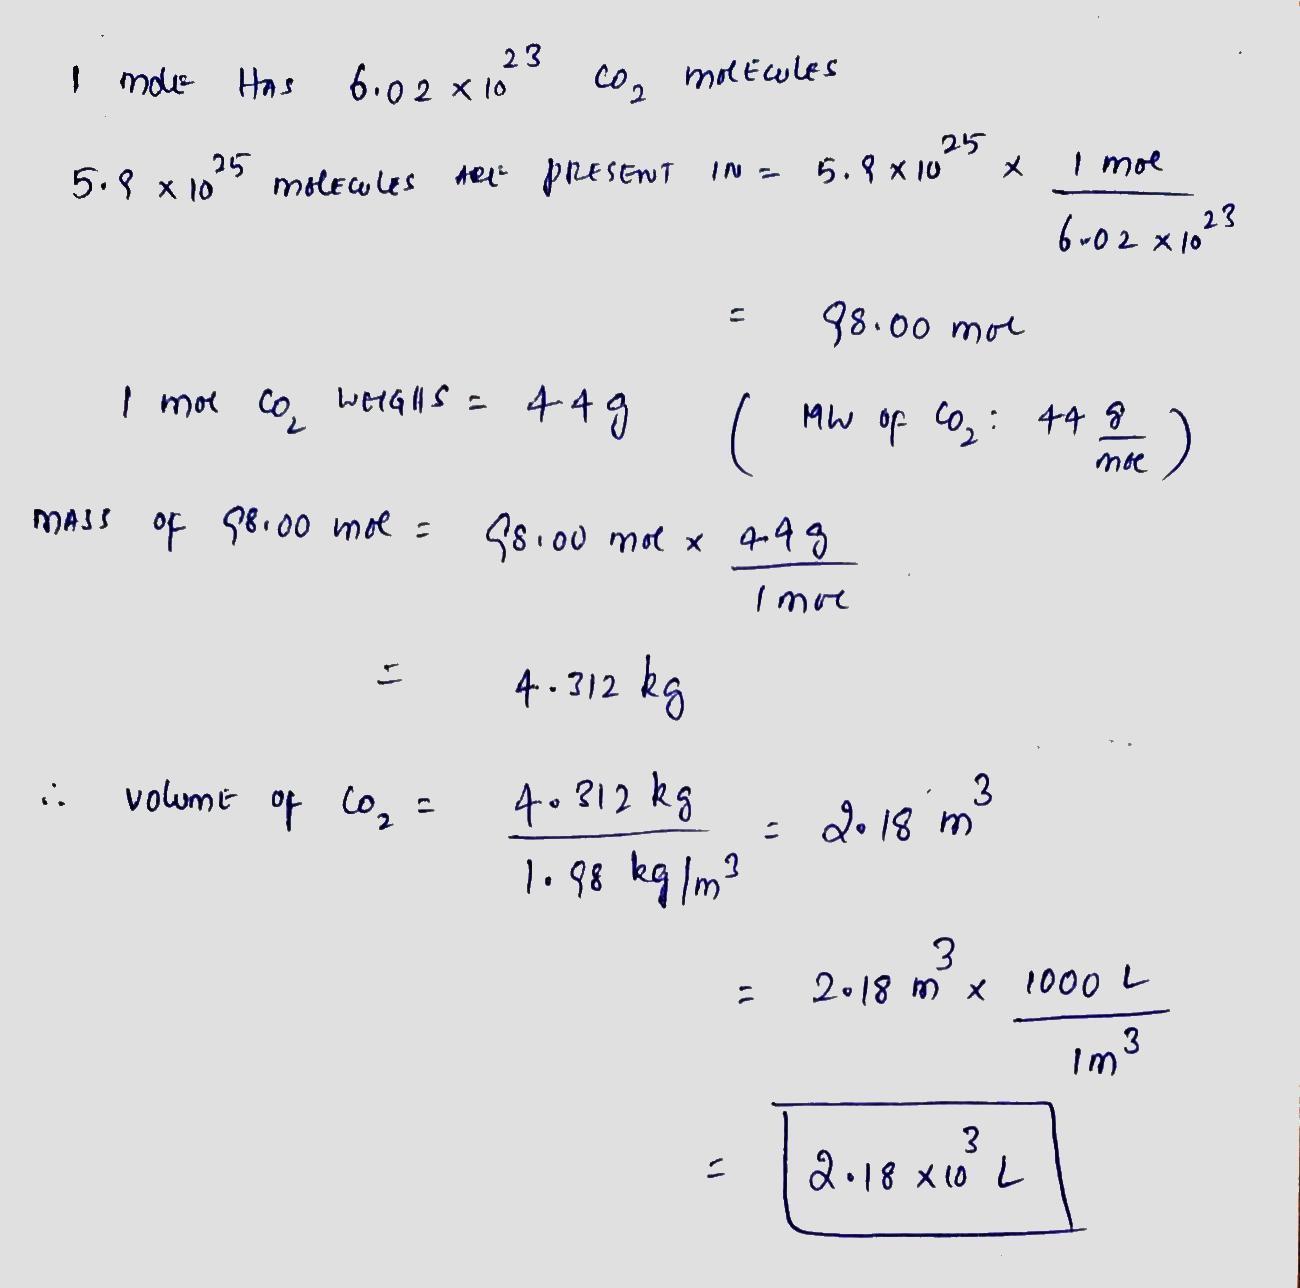 1 mole HAS 6.02 x 10^23 CO2 molEcules
5.9 x 10^25 molEcules ARE PRESENT IN = 5.9 x 10^25 x 1 mol / 6.02 x 10^23
= 98.00 mol
1 mol CO2 WEIGHS = 44 g ( MW of CO2 : 44 g/mol )
MASS of 98.00 mol = 98.00 mol x 44 g / 1 mol
= 4.312 kg
∴ volumE of CO2 = 4.312 kg / 1.98 kg/m^3 = 2.18 m^3
= 2.18 m^3 x 1000 L / 1 m^3
= 2.18 x 10^3 L